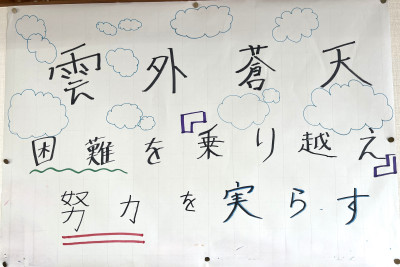 雲外蒼天
困難を『乗り越え』
努力を実らす